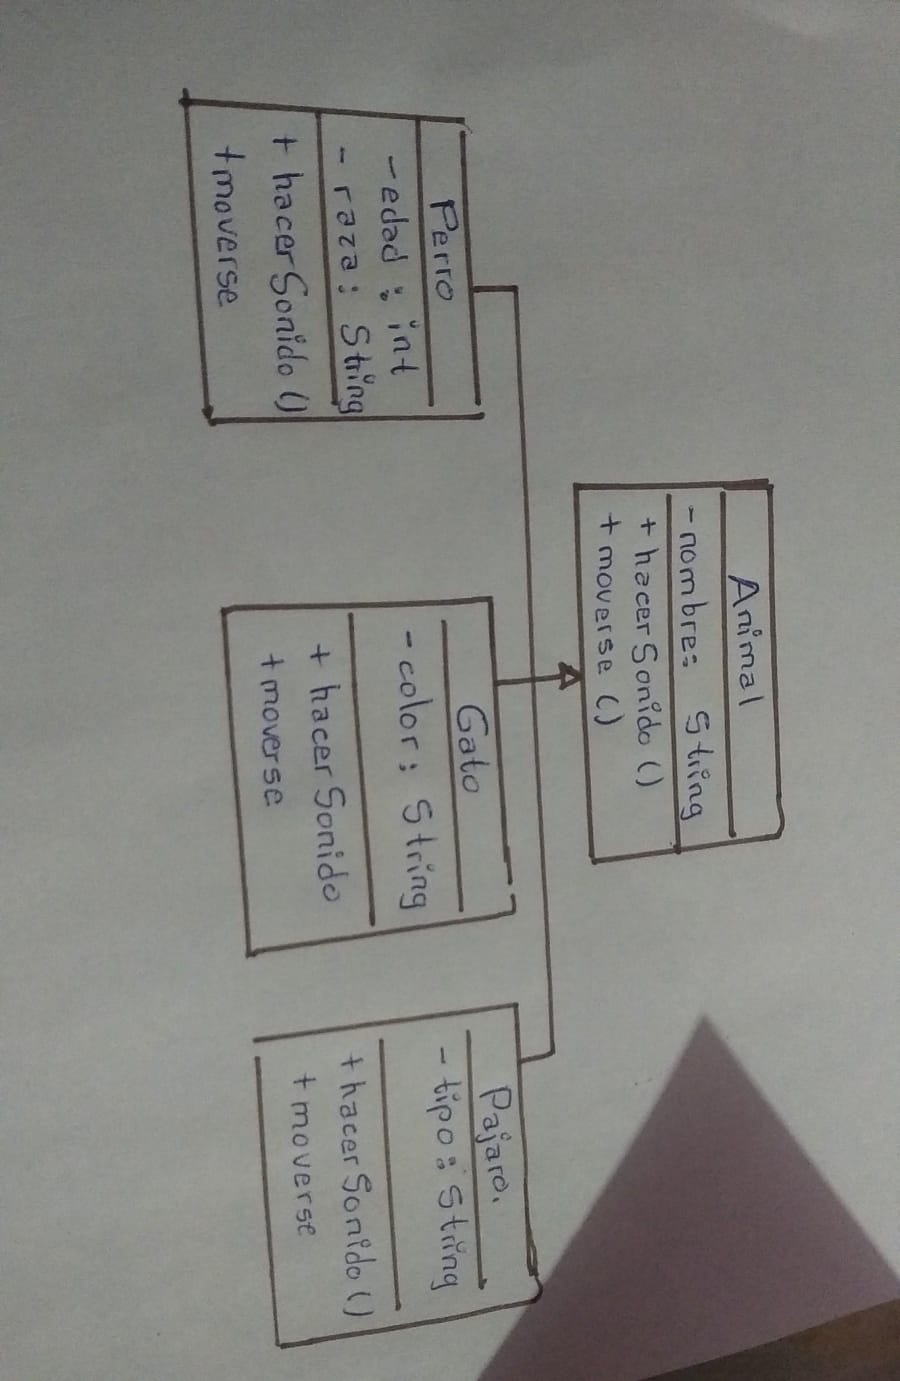 Animal
- nombre: String
+ hacerSonido ()
+ moverse ()
Perro
- edad : int
- raza : String
+ hacerSonido ()
+ moverse
Gato
- color : String
+ hacerSonido
+ moverse
Pajaro.
- tipo : String
+ hacerSonido ()
+ moverse